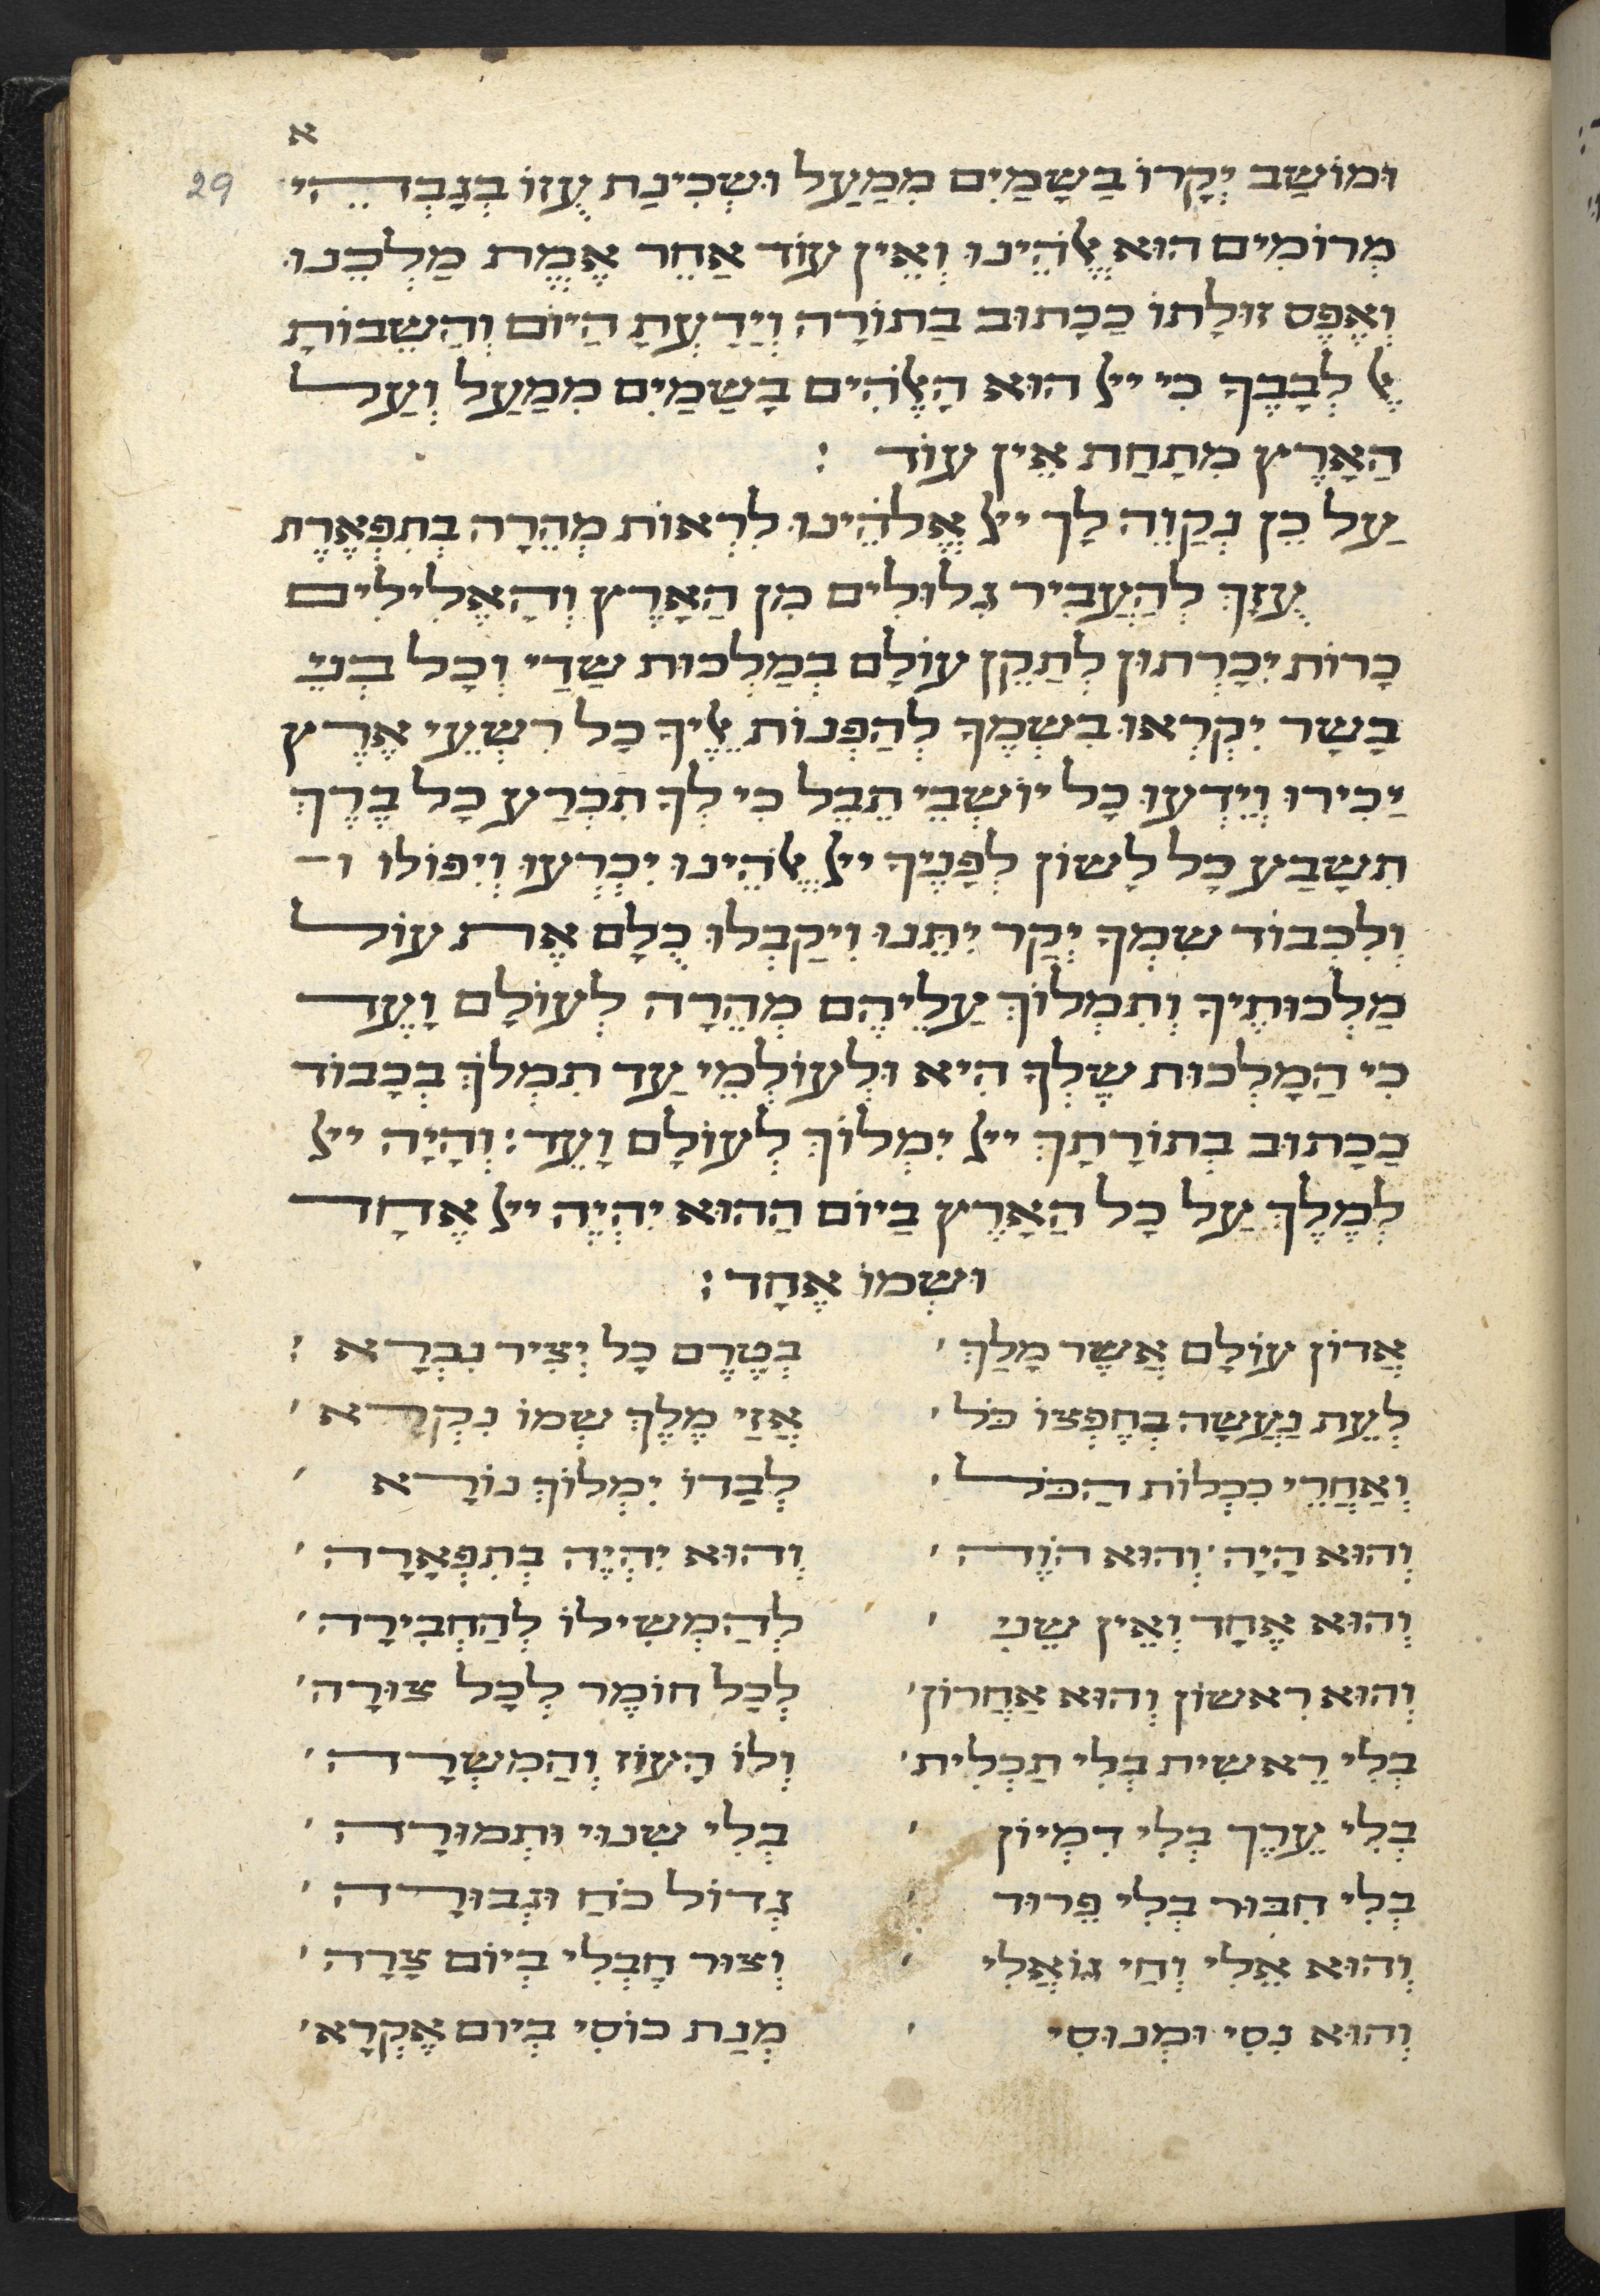 א
29
וּמוֹשַב יְקָרוֹ בַשָמַיִם מִמַעַל וּשְכִינַת עֻזוֹ בְגָבְהֵי
מְרוֹמִים הוּא אֱלֹהֵינוּ וְאֵין עוֹד אַחֵר אֱמֶת מַלְכֵנוּ
וְאֶפֶס זוּלָתוֹ כַכָתוּב בַתוֹרָה וְיָדַעְתָ הַיוֹם וַהֲשֵבוֹתָ
אֶל לְבָבֶךָ כִי ייָ הוּא הָאֱלֹהִים בַשָמַיִם מִמַעַל וְעַל
הָאָרֶץ מִתָחַת אֵין עוֹד :
עַל כֵן נְקַוֶה לָךְ ייָ אֱלֹהֵינוּ לִרְאוֹת מְהֵרָה בְתִפְאֶרֶת
עֻזָךְ לְהַעֲבִיר גִלוּלִים מִן הָאָרֶץ וְהָאֱלִילִים
כָרוֹת יִכָרְתוּן לְתַקֵן עוֹלָם בְמַלְכוּת שַדַי וְכָל בְנֵי
בָשָר יִקְרְאוּ בִשְמֶךָ לְהַפְנוֹת אֵלֶיךָ כָל רִשְעֵי אֶרֶץ
יַכִירוּ וְיֵדְעוּ כָל יוֹשְבֵי תֵבֵל כִי לְךָ תִכְרַע כָל בֶרֶךְ
תִשָבַע כָל לָשוֹן לְפָנֶיךָ ייָ אֱלֹהֵינוּ יִכְרְעוּ וְיִפוֹלוּ ו־
וְלִכְבוֹד שִמְךָ יְקָר יִתֵנוּ וִיקַבְלוּ כֻלָם אֶת עוֹל
מַלְכוּתֶיךָ וְתִמְלוֹךְ עֲלֵיהֶם מְהֵרָה לְעוֹלָם וָעֶד
כִי הַמָלְכוּת שֶלְךָ הִיא וּלְעוֹלְמֵי עַד תִמְלֹךְ בְכָבוֹד
כַכָתוּב בְתוֹרָתָךְ ייָ יִמְלוֹךְ לְעוֹלָם וָעֵד : וְהָיָה ייָ
לְמֶלֶךְ עַל כָל הָאָרֶץ בַיוֹם הַהוּא יִהְיֶה ייָ אֶחָד
וּשְמוֹ אֶחָד :
אֲדוֹן עוֹלָם אֲשֶר מָלַךְ ׳ בְטֶרֶם כָל יְצִיר נִבְרָא :
לְעֵת נַעֲשָה בְחֶפְצוֹ כֹל ׳ אֲזַי מֶלֶךְ שְמוֹ נִקְרָא ׳
וְאַחֲרֵי כִכְלוֹת הַכֹל ׳ לְבַדוֹ יִמְלוֹךְ נוֹרָא ׳
וְהוּא הָיָה ׳ וְהוּא הוֶֹה ׳ וְהוּא יִהְיֶה בְתִפְאָרָה ׳
וְהוּא אֶחָד וְאֵין שֵנִי ׳ לְהַמְשִילוֹ לְהַחְבִירָה ׳
וְהוּא רִאשוֹן וְהוּא אַחֲרוֹן ׳ לְכָל חוֹמֶר לְכָל צוּרָה ׳
בְלִי רֵאשִית בְלִי תַכְלִית ׳ וְלוֹ הָעוֹז וְהַמִשְרָה ׳
בְלִי עֵרֶךְ בְלִי דִמְיוֹן ׳ בְלִי שִנוּי וּתְמוּרָה ׳
בְלִי חִבּוּר בְלִי פֵרוּד ׳ גְדוֹל כֹחַ וּגְבוּרָה ׳
וְהוּא אֵלִי וְחַי גוֹאֲלִי ׳ וְצוּר חֶבְלִי בְיוֹם צָרָה ׳
וְהוּא נִסִי וּמְנוּסִי ׳ מְנַת כוֹסִי בְיוֹם אֶקְרָא ׳